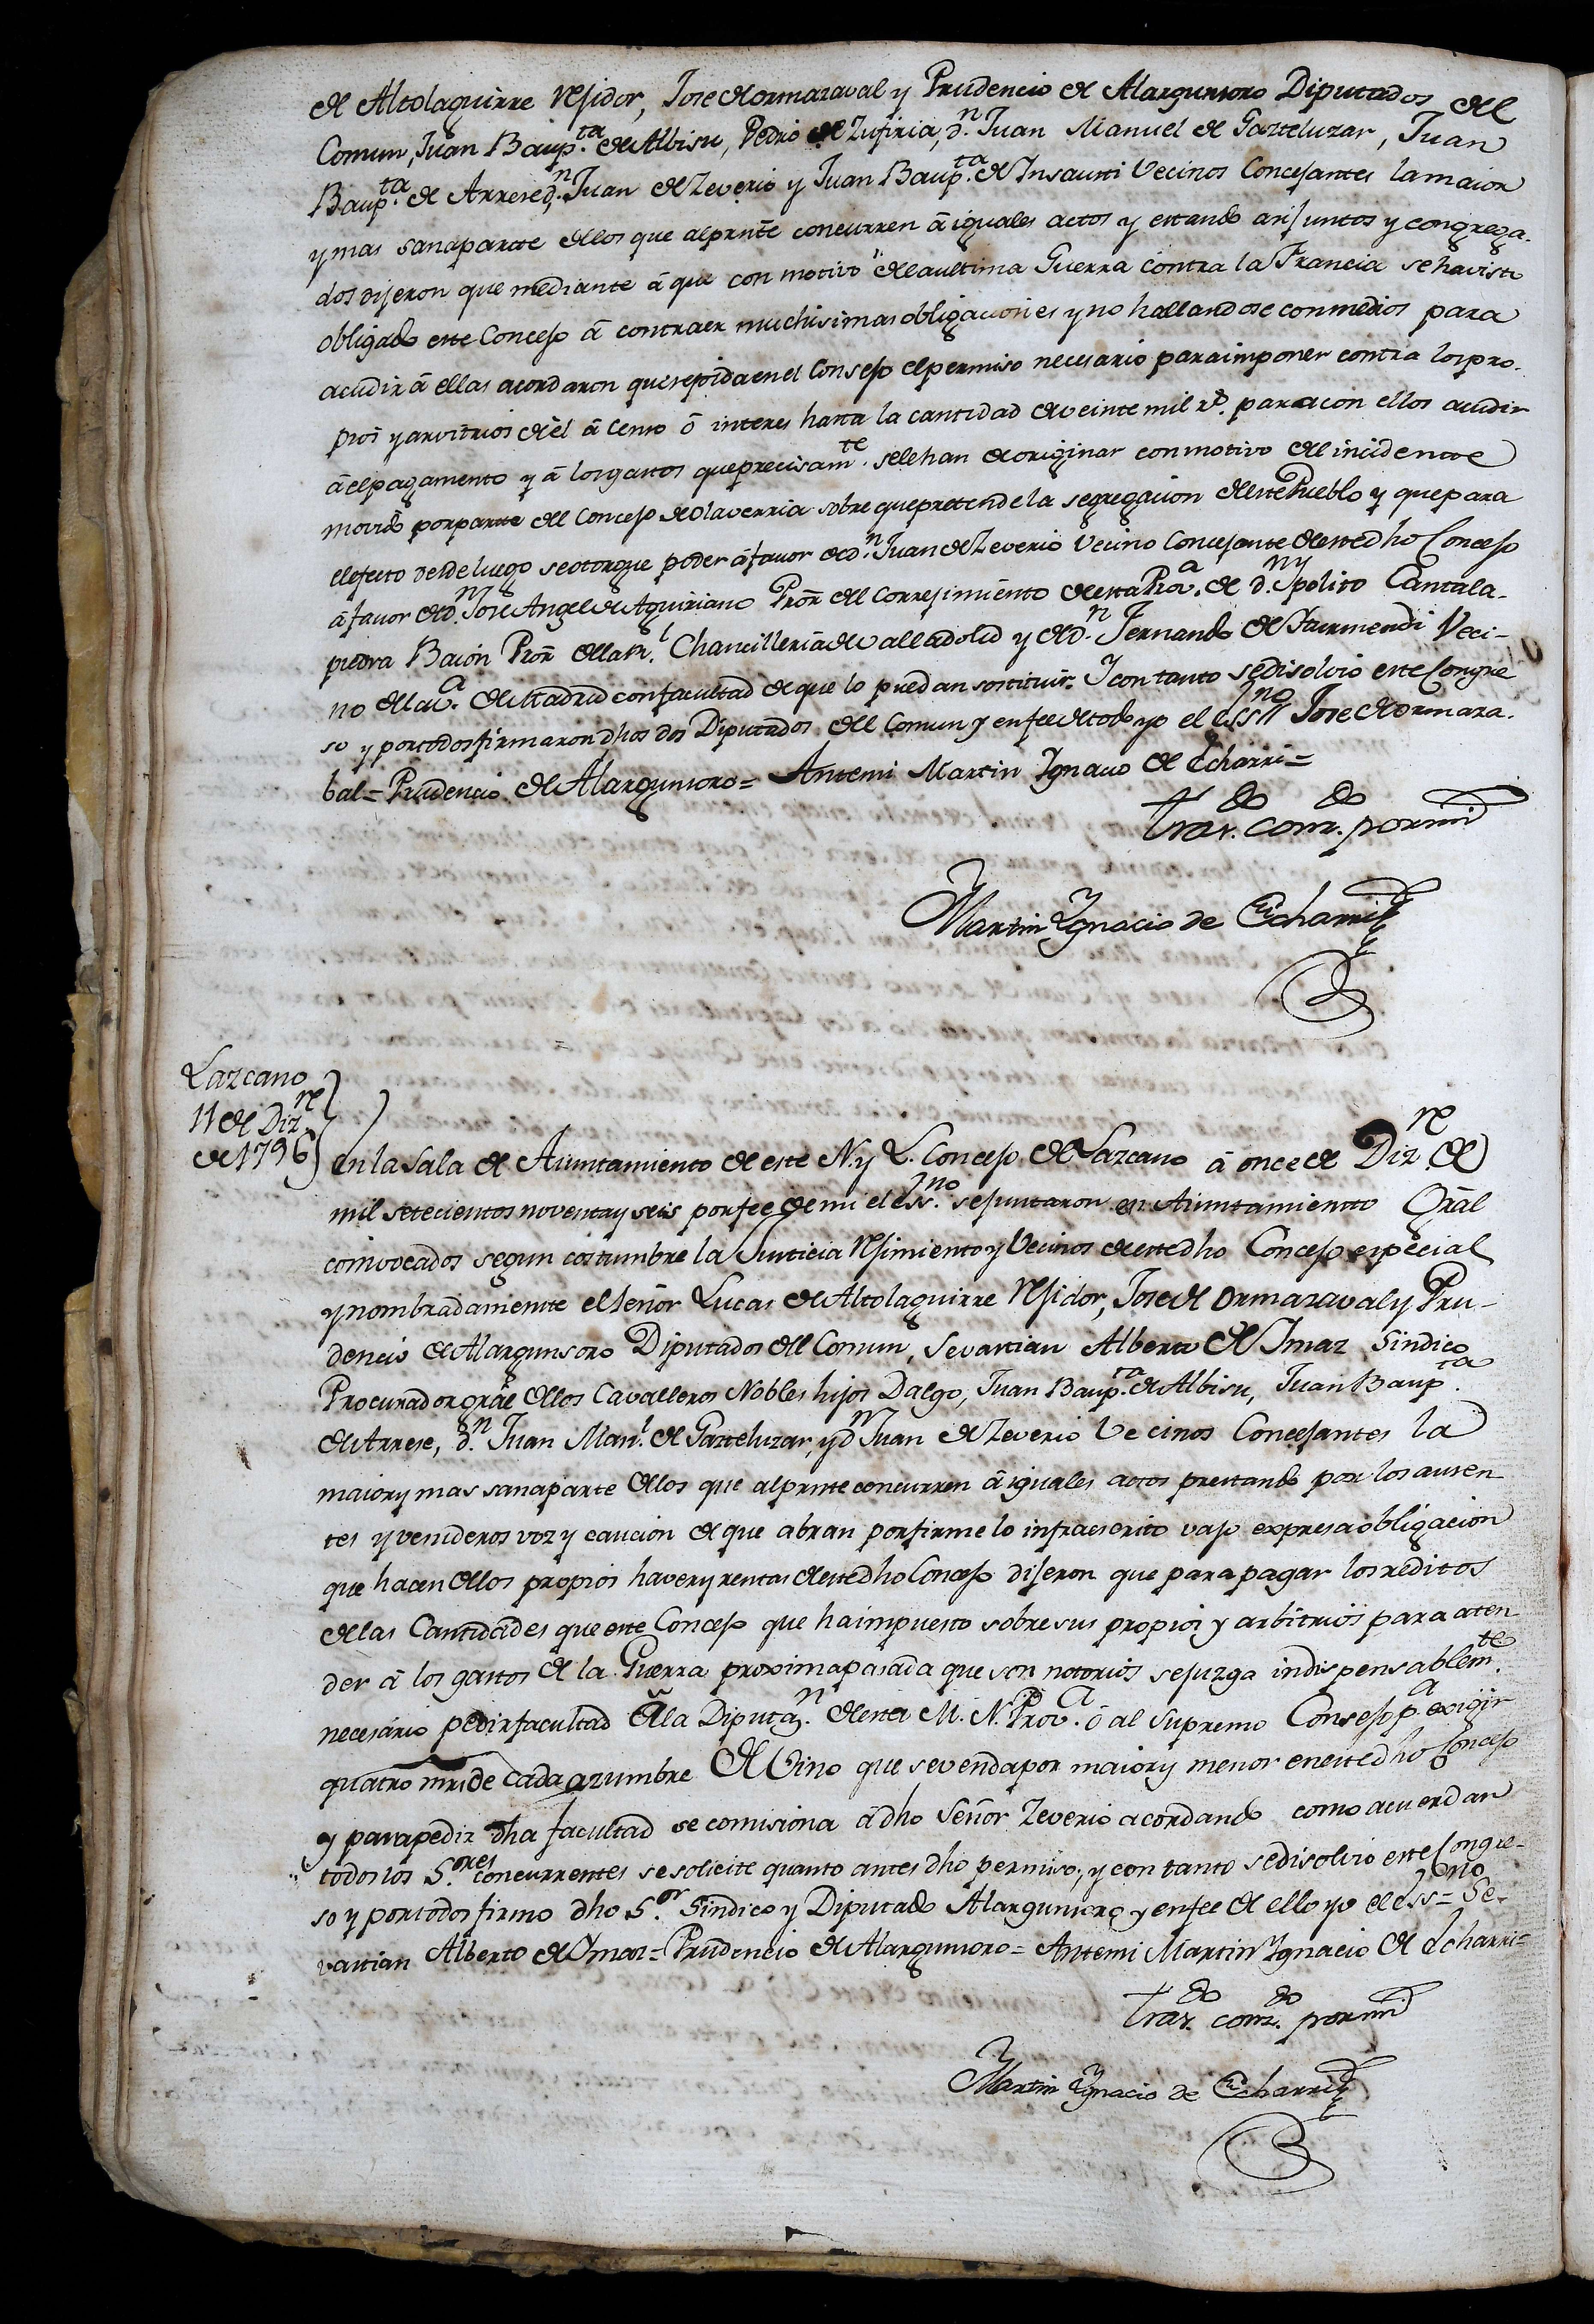 de Altolaguirre Rejidor, Jose de ormazaval y Prudencio de Alargunsoro Diputados del
Comun, Juan Baup.ta de Albisu, Pedro de Zufiria, d.n Juan Manuel de Gazteluzar, Juan
Baup.ta de Arrese d.n Juan de Zeverio y Juan Baup.ta de Insausti Vecinos Concejantes la maior
y mas sana parte de los que al prnte concurren á iguales actos y estando asi juntos y congrega-
dos dijeron que mediante á que con motivo de la ultima Guerra contra la Francia se ha visto
obligado este Concejo á contraer muchisimas obligaciones y no hallandose con medios para
acudir á ellas acordaron que se pida en el Consejo el permiso necesario para imponer contra los pro-
pios y arvitrios de él á censo ó interes hasta la cantidad de veinte mil r.s para con ellos acudir
á el pagamento y á los gastos que precisam.te se le han de originar con motivo del incidente
movido por parte del Concejo de Olaverria sobre que pretende la segregacion de este Pueblo y que para
el efecto desde luego se otorgue poder á favor de d.n Juan de Zeverio Vecino Concejante de este dho Concejo
á favor de d.n Jose Angel de Aguiriano Pror del Correjimiento de esta Prov.a de d.n Ypolito Cantala-
piedra Bacon Pror de la R.l Chancilleria de Valladolid y de d.n Fernando de Iturmendi Veci-
no de la v.a de Madrid con facultad de que lo puedan sostituir. Y con tanto se disolvio este Congre
so y por todos firmaron dhos dos Diputados del Comun y en fee de todo yo el essno Jose de ormaza-
bal = Prudencio de Alargunsoro = Antemi Martin Ygnacio de Echarri =
Tras.do conz.do por mi
Martin Ygnacio de Echarri
Lazcano
11 de Diz.re
de 1796
En la Sala de Aiuntamiento de este N. y L. Concejo de Lazcano á once de Diz.re de
mil setecientos noventa y seis por fee de mi el ess.no se juntaron en Aiuntamiento Gral
comvocados segun costumbre la Justicia Rejimiento y Vecinos de este dho Concejo especial
y nombradamente el señor Lucas de Altolaguirre Rejidor, Jose de Ormazaval y Pru-
dencio de Alargunsoro Diputados del Comun, Sevastian Alberto de Ymaz Sindico
Procurador gral de los Cavalleros Nobles hijos Dalgo, Juan Baup.ta de Albisu, Juan Baup.ta
de Arrese, d.n Juan Man.l de Gazteluzar, y d.n Juan de Zeverio Vecinos Concejantes la
maior y mas sana parte de los que al prnte concurren á iguales actos prestando por los ausen
tes y venideros voz y caucion de que abran por firme lo infraescrito vajo expresa obligacion
que hacen de los propios haver y rentas de este dho Concejo dijeron que para pagar los reditos
de las Cantidades que este Concejo que ha impuesto sobre sus propios y arbitrios para aten
der á los gastos de la Guerra proxima pasada que son notorios se juzga indispensablem.te
necesario pedir facultad á la Diputaz.n de esta M. N. Prov.a ó al Supremo Consejo p.a exigir
quatro mrs de cada azumbre de Vino que se venda por maior y menor en este dho Concejo
y para pedir dha facultad se comisiona á dho Señor Zeverio acordando como acuerdan
todos los S.ores concurrentes se solicite quanto antes dho permiso; y con tanto se disolvio este Congre-
so y por todos firmo dho S.or Sindico y Diputado Alargunsoro y en fee de ello yo el ess.no = Se-
vastian Alberto de Ymaz = Prudencio de Alargunsoro = Antemi Martin Ygnacio de Echarri =
Tras.do conz.do por mi
Martin Ygnacio de Echarri